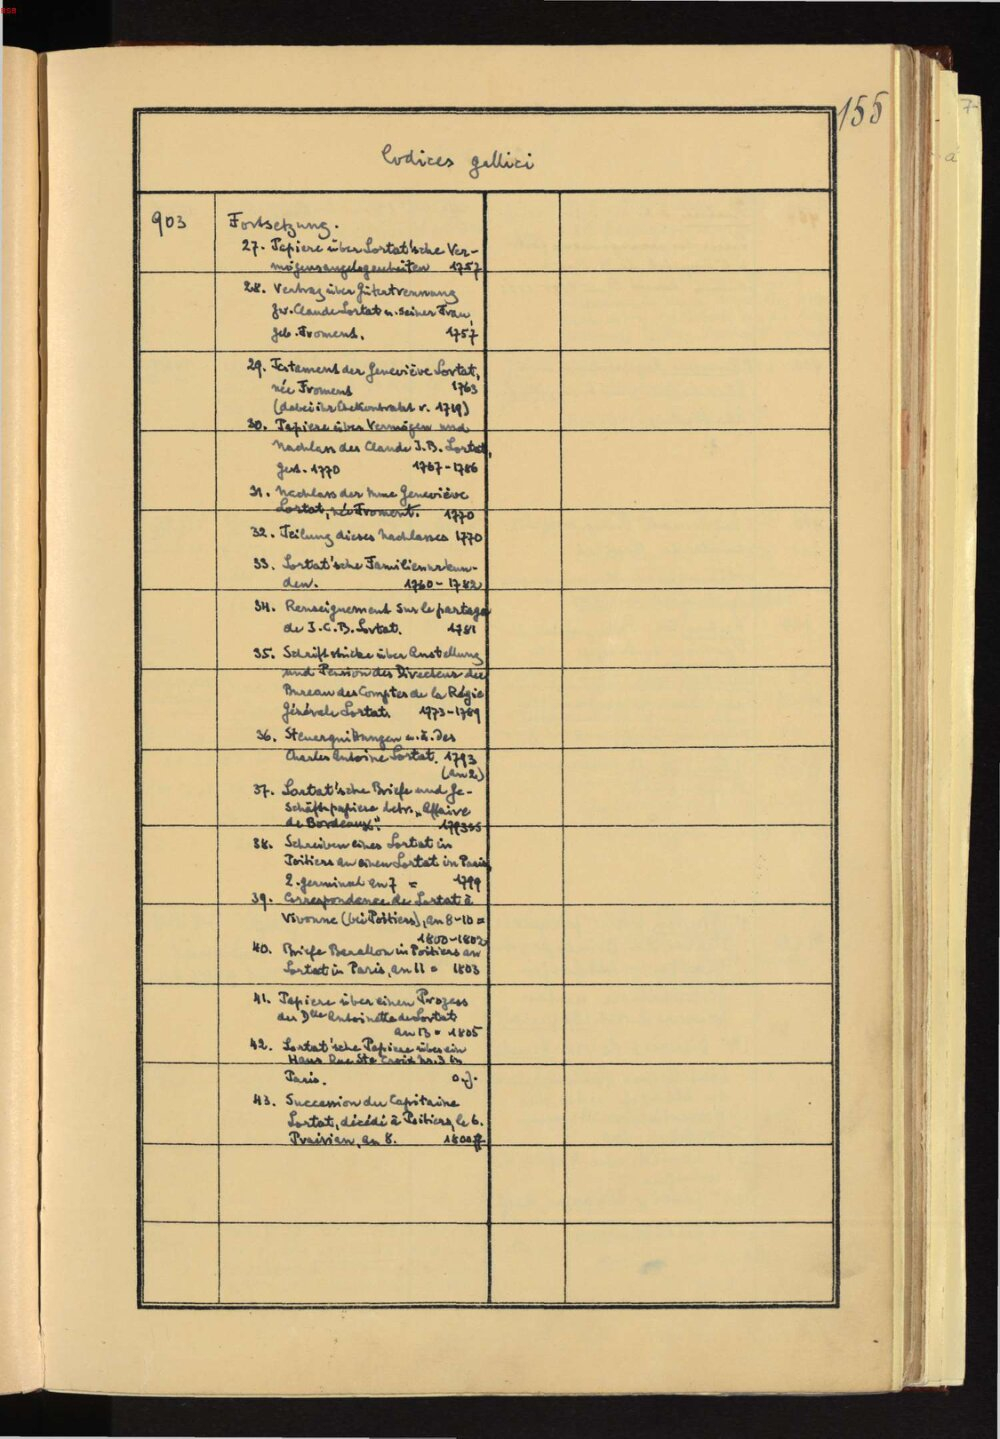 BSB
155
7
a
Codices gallici
903
Fortsetzung.
27. Papiere über Lortat'sche Ver-
mögensangelegenheiten 1757
28. Vertrag über Gütertrennung
zw. Claude Lortat u. seiner Frau,
geb. Froment. 1757
29. Testament der Geneviève Lortat,
née Froment 1763
(dabei ihr Ehekontrakt v. 1719)
30. Papiere über Vermögen und
Nachlass des Claude J.B. Lortat,
gest. 1770 1767-1786
31. Nachlass der Mme Geneviève
Lortat, née Froment. 1770
32. Teilung dieses Nachlasses 1770
33. Lortat'sche Familienurkun-
den. 1760-1782
34. Renseignement sur le partage
de J.C.B. Lortat. 1781
35. Schriftstücke über Anstellung
und Pension des Directeur des
Bureau des Comptes de la Régie
Générale Lortat. 1773-1789
36. Steuerquittungen u.ä. des
Charles Antoine Lortat. 1793
(an 2)
37. Lortat'sche Briefe und Ge-
schäftspapiere betr. „Affaire
de Bordeaux". 1793ss
38. Schreiben eines Lortat in
Poitiers an einen Lortat in Paris,
2. germinal an 7 = 1799
39. Correspondance de Lortat à
Vivonne (bei Poitiers), an 8-10 =
1800-1802
40. Briefe in Poitiers an
Lortat in Paris, an 11 = 1803
41. Papiere über einen Prozess
der Dlle Antoinette de Lortat
an 13 = 1805
42. Lortat'sche Papiere über ein
Haus Rue Ste Croix nr. 3 in
Paris. o.J.
43. Succession du Capitaine
Lortat, décédé à Poitiers, le 6.
Prairian, an 8. 1800ff